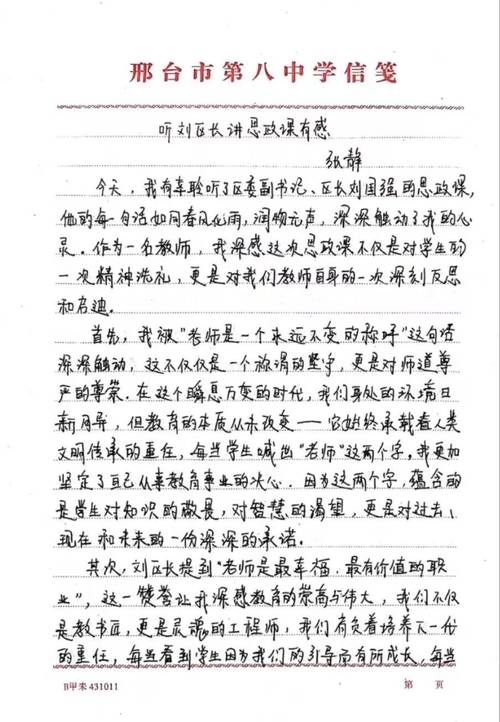 邢台市第八中学信笺
听刘区长讲思政课有感
张静
今天，我有幸聆听了区委副书记、区长刘国强的思政课，
他的每一句话如同春风化雨，润物无声，深深触动了我的心
灵。作为一名教师，我深感这次思政课不仅是对学生的
一次精神洗礼，更是对我们教师自身的一次深刻反思
和启迪.
首先，我被"老师是一个永远不变的称呼"这句话
深深触动，这不仅仅是一个称谓的坚守，更是对师道尊
严的尊崇. 在这个瞬息万变的时代，我们身处的环境日
新月异，但教育的本质从未改变——它始终承载着人类
文明传承的重任，每当学生喊出"老师"这两个字，我更加
坚定了自己从事教育事业的决心. 因为这两个字，蕴含的
是学生对知识的敬畏，对智慧的渴望，更是对过去、
现在和未来的一份深深的承诺.
其次，刘区长提到"老师是最幸福、最有价值的职
业"，这一赞誉让我深感教育的崇高与伟大，我们不仅
是教书匠，更是灵魂的工程师，我们肩负着培养下一代
的重任，每当看到学生因为我们的引导而有所成长，每当
B甲未431011
第 页